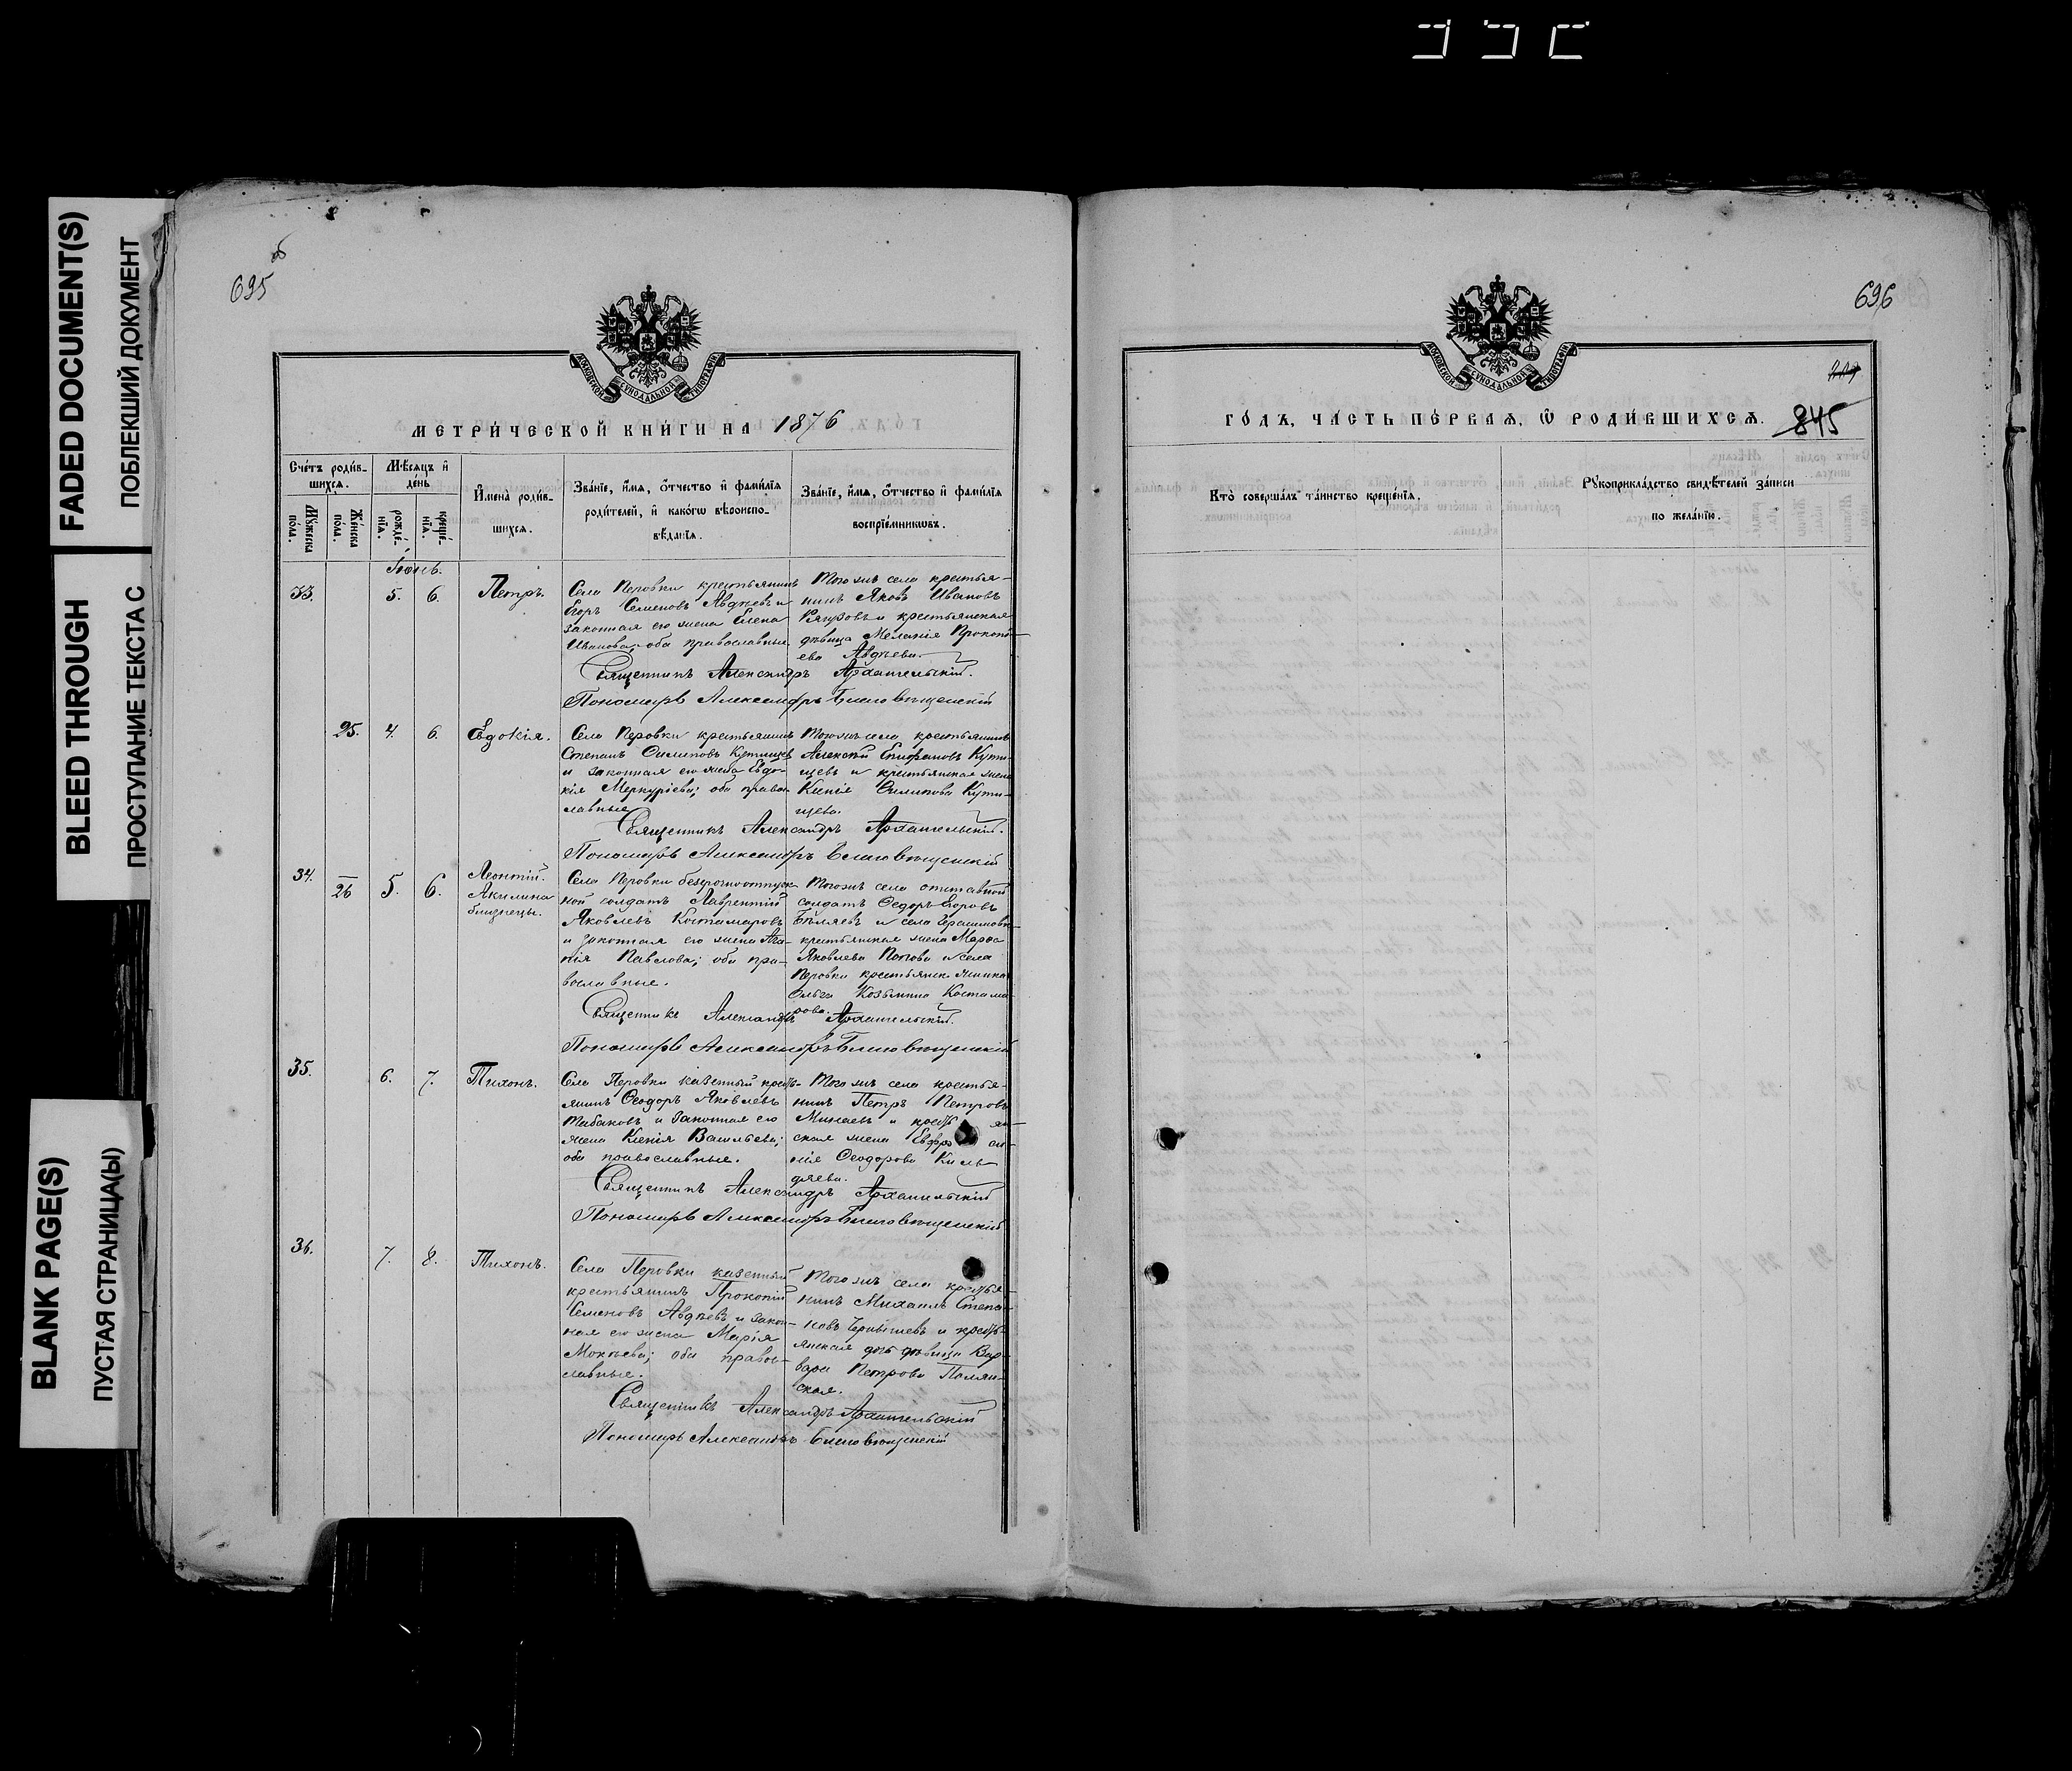 FADED DOCUMENT(S)
ПОБЛЕКШИЙ ДОКУМЕНТ
BLEED THROUGH
ПРОСТУПАНИЕ ТЕКСТА С
BLANK PAGE(S)
ПУСТАЯ СТРАНИЦА(Ы)
695
об
МОСКОВСКОЙ СѴНОДАЛЬНОЙ ТИПОГРАФІИ
МЕТРИ́ЧЕСКОЙ КНИ́ГИ НА 1876
Сче́тъ роди́в-
шихся.
Мѣ́сяцъ и҆
де́нь
Мꙋ́жеска
по́ла.
Же́нска
по́ла.
рожде́-
нїѧ.
креще́-
нїѧ.
И҆мена̀ роди́в-
шихся.
Зва́нїе, и҆́мя, ѻ҆́тчество и҆ фами́лїя
роди́телей, и҆ како́гѡ вѣроиспо-
вѣ́данїя.
Зва́нїе, и҆́мя, ѻ҆́тчество и҆ фами́лїя
воспрїе́мникѡвъ.
Іюнь.
33.
5.
6.
Петръ.
Села Перовки крестьянинъ
Егоръ Семеновъ Авдѣевъ и
законная его жена Елена
Иванова; оба православные.
Того жъ села крестья-
нинъ Яковъ Ивановъ
и крестьянская
дѣвица Меланія Прокопі-
ева Авдѣева.
Священникъ Александръ Архангельскій.
Пономарь Александръ Благовѣщенскій
25.
4.
6.
Евдокія.
Села Перовки крестьянинъ
Степанъ Филиповъ Кутищевъ
и законная его жена Евдо-
кія Меркуріева; оба право-
славные
Того жъ села крестьянинъ
Алексѣй Епифановъ Кути-
щевъ и крестьянская жена
Ксенія Филипова Кути-
щева.
Священникъ Александръ Архангельскій.
Пономарь Александръ Благовѣщенскій
34.
26
5.
6.
Леонтій.
Акилина
близнецы.
Села Перовки безсрочноотпуск-
ной солдатъ Лаврентій
Яковлевъ Костамаровъ
и законная его жена Ага-
пія Павлова; оба пра-
вославные.
Того жъ села отставной
солдатъ Федоръ Егоровъ
Бѣляевъ и села Герасимовки
крестьянская жена Марѳа
Яковлева Попова и села
Перовки крестьянск. жинка
Ольга Козьмина Костама-
рова.
Священникъ Александръ Архангельскій.
Пономарь Александръ Благовѣщенскій
35.
6.
7.
Тихонъ.
Села Перовки казенный кресть-
янинъ Ѳеодоръ Яковлевъ
Табаковъ и законная его
жена Ксенія Васильева;
оба православные.
Того жъ села крестья-
нинъ Петръ Петровъ
Минаевъ и кресть ян-
ская жена Евфро си-
нія Ѳеодорова Киль-
дяева.
Священникъ Александръ Архангельскій
Пономарь Александръ Благовѣщенскій
36.
7.
8.
Тихонъ.
Села Перовки казенный
крестьянинъ Прокопій
Семеновъ Авдѣевъ и закон-
ная его жена Марія
Мокѣева; оба право-
славные.
Того жъ села крестья-
нинъ Михаилъ Степа-
новъ Чернышевъ и кресть-
янская дочь дѣвица Вар-
вара Петрова Полян-
ская.
Священникъ Александръ Архангельскій
Пономарь Александръ Благовѣщенскій
696
МОСКОВСКОЙ СѴНОДАЛЬНОЙ ТИПОГРАФІИ
ГО́ДЪ, ЧА́СТЬ ПЕ́РВАЯ, Ѡ҆ РОДИ́ВШИХСЯ.
845
Кто̀ соверша́лъ та́инство креще́нїя.
Рꙋкоприкла́дство свидѣ́телей за́писи
по жела́нїю.